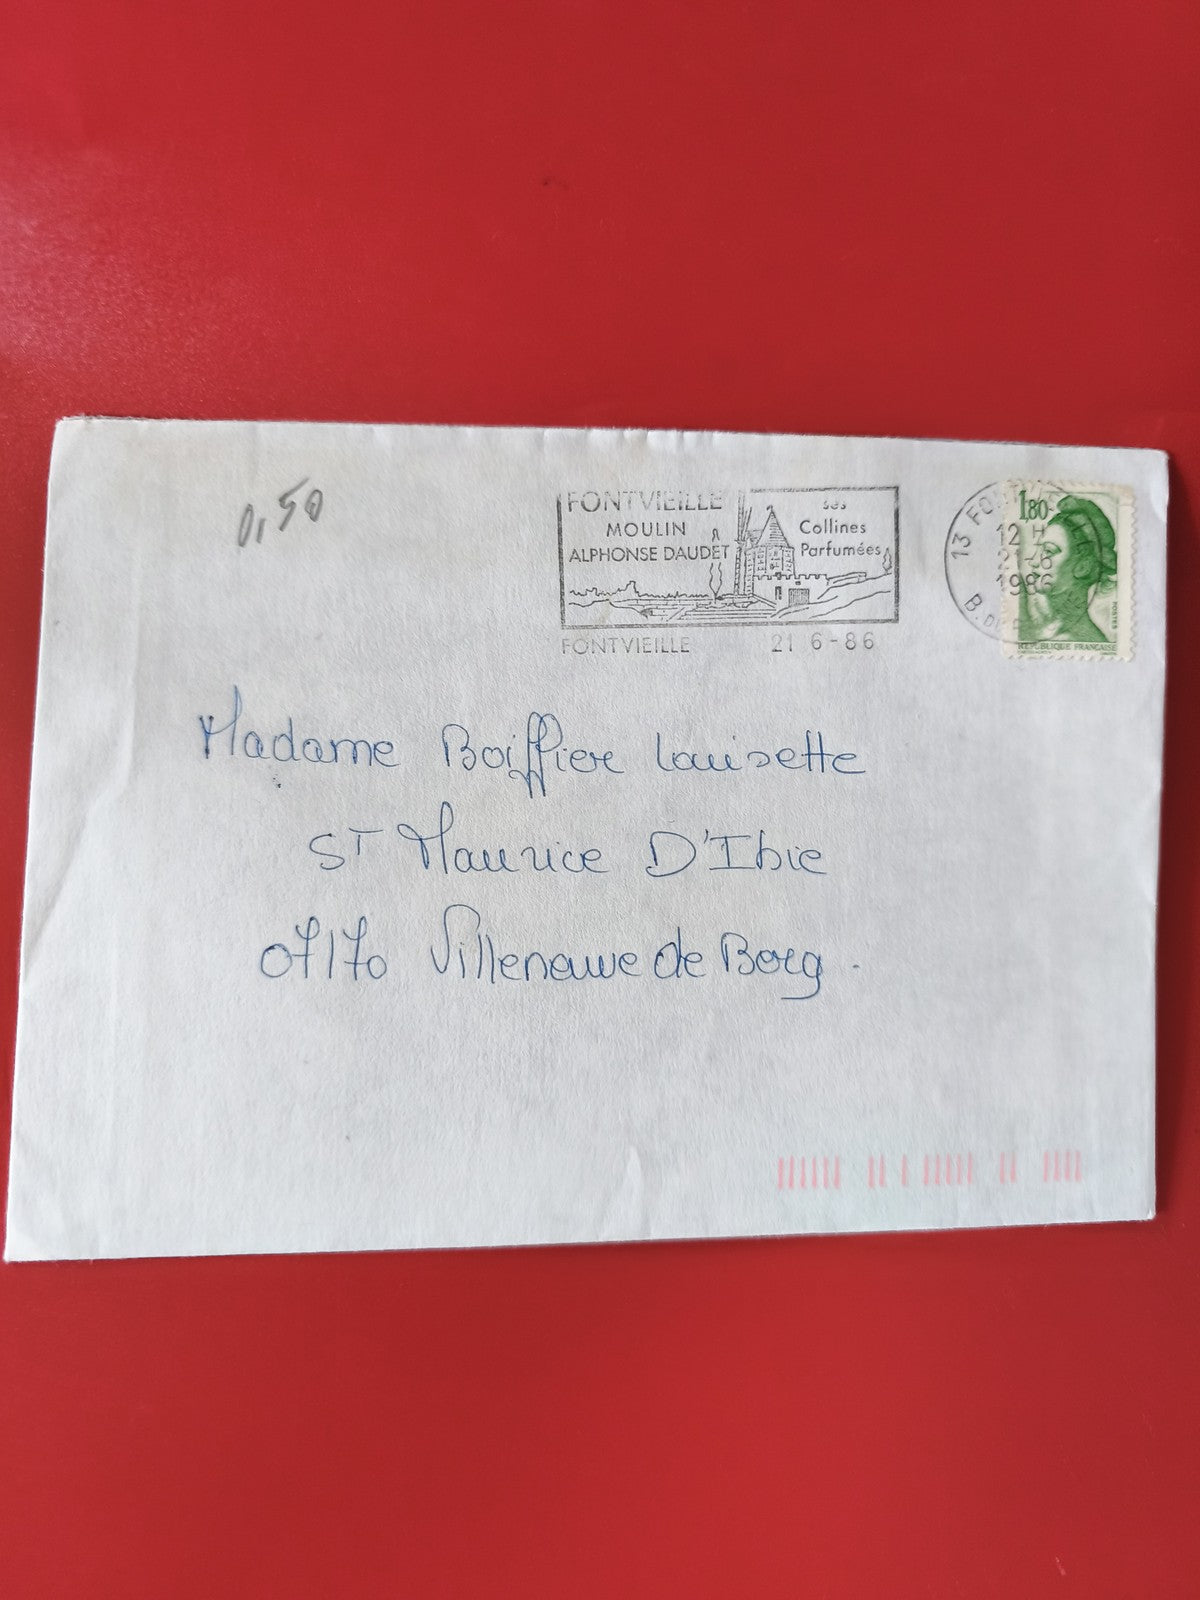 0,50
FONTVIEILLE
MOULIN
ALPHONSE DAUDET
Ses
Collines
Parfumées
FONTVIEILLE 21 6-86
13
12 H
21-6
1986
B. DU
1,80
POSTES
REPUBLIQUE FRANÇAISE
Madame Boiffier Louisette
ST Maurice D'Ibie
07170 Villeneuve de Berg.